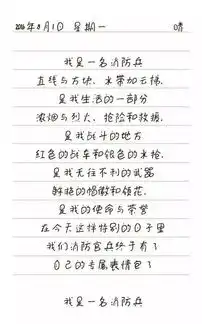 2016年8月1日 星期一 晴
我是一名消防兵
直线与方块、水带加云梯、
是我生活的一部分
浓烟与烈火、抢险和救援、
是我战斗的地方
红色的战车和银色的水枪、
是我无往不利的武器
鲜艳的帽徽和领花、
是我的使命与荣誉
在今天这样特别的日子里
我们消防官兵终于有了
自己的专属表情包了
我是一名消防兵